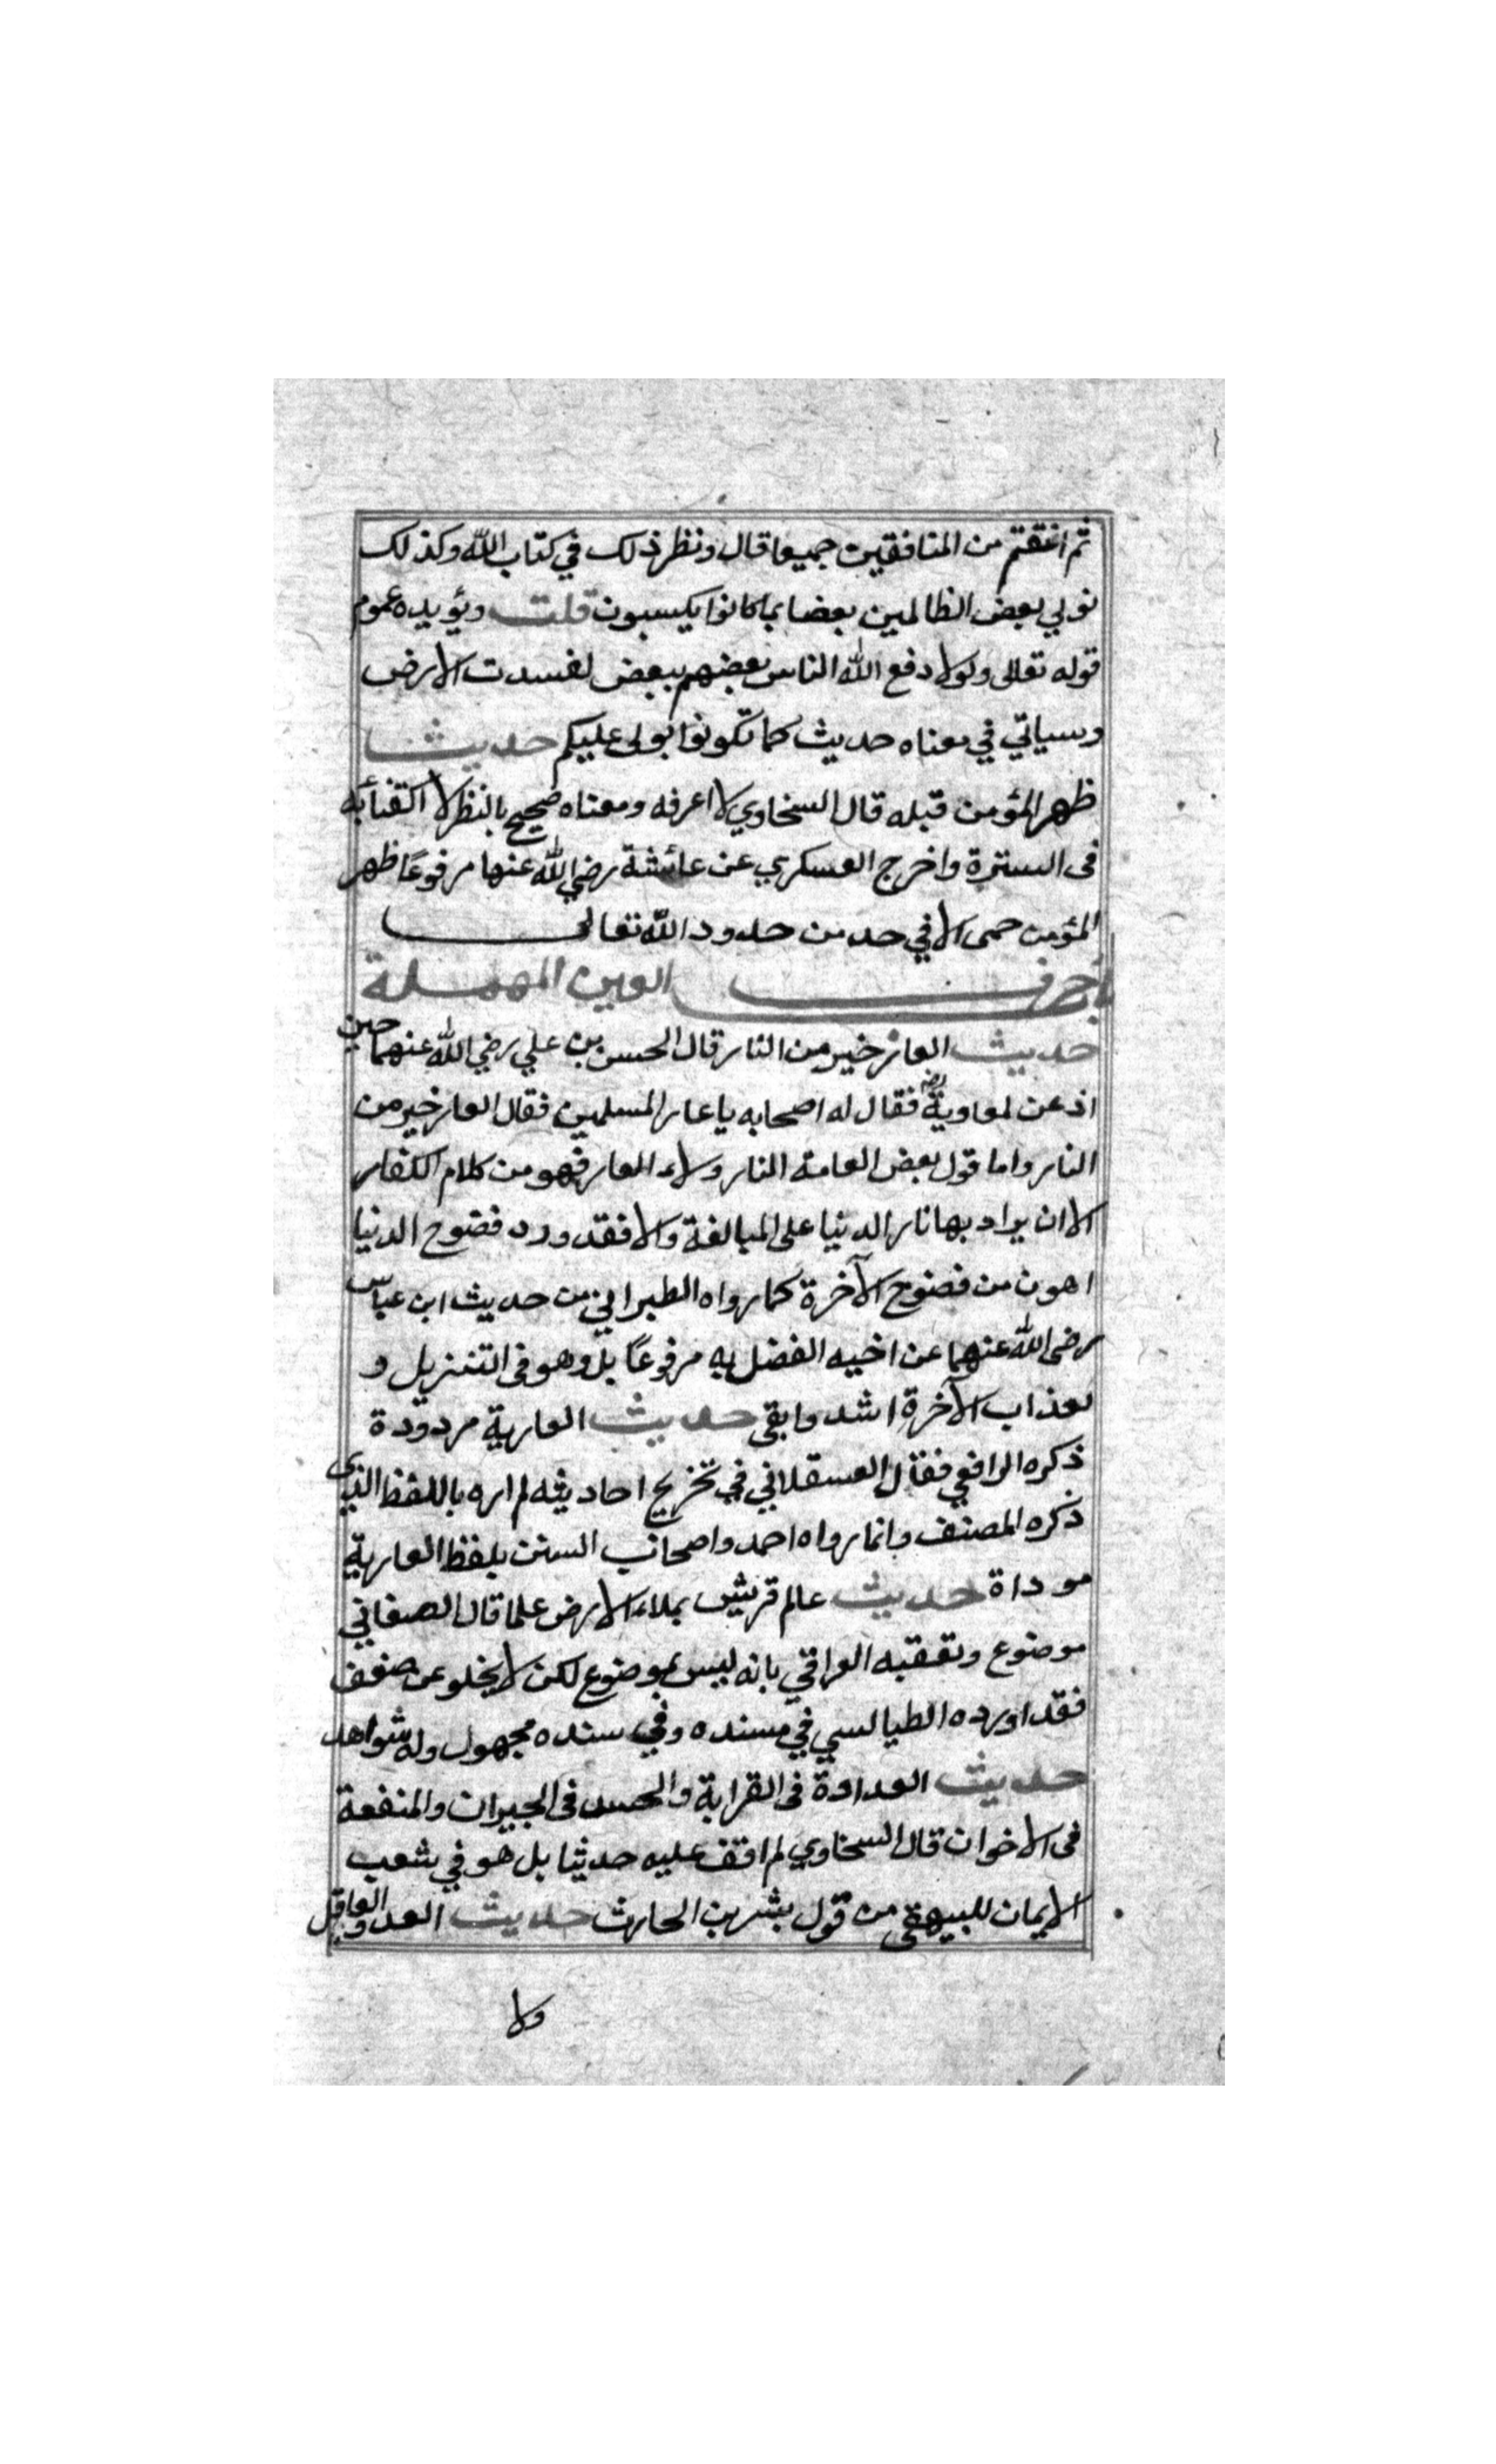 ثم انتقم من المنافقين جميعا قال ونظر ذلك في كتاب الله وكذلك
نولي بعض الظالمين بعضا بما كانوا يكسبون قلت ويؤيده عموم
قوله تعالى ولولا دفع الله الناس بعضهم ببعض لفسدت الارض
وسياتي في معناه حديث كما تكونوا يولى عليكم حديث
ظهر المؤمن قبله قال السخاوي لا اعرفه ومعناه صحيح بالنظر لاكتفائه
فى السترة واخرج العسكري عن عائشة رضي الله عنها مرفوعًا ظهر
المؤمن حمى الا في حد من حدود الله تعالى
حرف العين المهملة
حديث العار خير من النار قال الحسن بن علي رضي الله عنهما حين
اذعن لمعاوية رضه فقال له اصحابه يا عار المسلمين فقال العار خير من
النار واما قول بعض العامة النار ولاء العار فهو من كلام الكفار
الا ان يراد بها نار الدنيا على المبالغة والا فقد ورد فضوح الدنيا
اهون من فضوح الآخرة كما رواه الطبراني من حديث ابن عباس
رضى الله عنهما عن اخيه الفضل به مرفوعًا بل وهو فى التنزيل و
لعذاب الآخرة اشد وابقى حديث العارية مردودة
ذكره الرافعي فقال العسقلاني في تخريج احاديثه لم اره باللفظ الذي
ذكره المصنف وانما رواه احمد واصحاب السنن بلفظ العارية
موداة حديث عالم قريش يملاء الارض علما قال الصغاني
موضوع وتعقبه العراقي بانه ليس بموضوع لكن لا يخلو عن ضعف
فقد اورده الطيالسي في مسنده وفي سنده مجهول وله شواهد
حديث العداوة فى القرابة والحسد فى الجيران والمنفعة
فى الاخوان قال السخاوي لم اقف عليه حديثا بل هو في شعب
الايمان للبيهقى من قول بشر بن الحارث حديث العدو العاقل
ولا